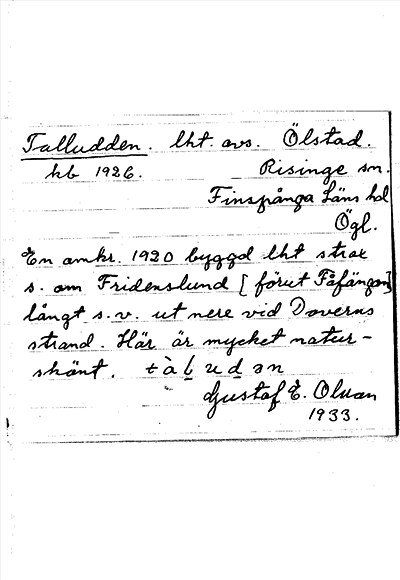 Talludden. lht. avs. Ölstad.
kb 1926. Risinge sn.
Finspånga Läns hd
Ögl.
En omkr. 1920 byggd lht strax
s. om Fridenslund [förut Fåfängan]
långt s.v. ut nere vid Doverns
strand. Här är mycket natur-
skönt. tàḷuḍən
Gustaf E. Olsson
1933.